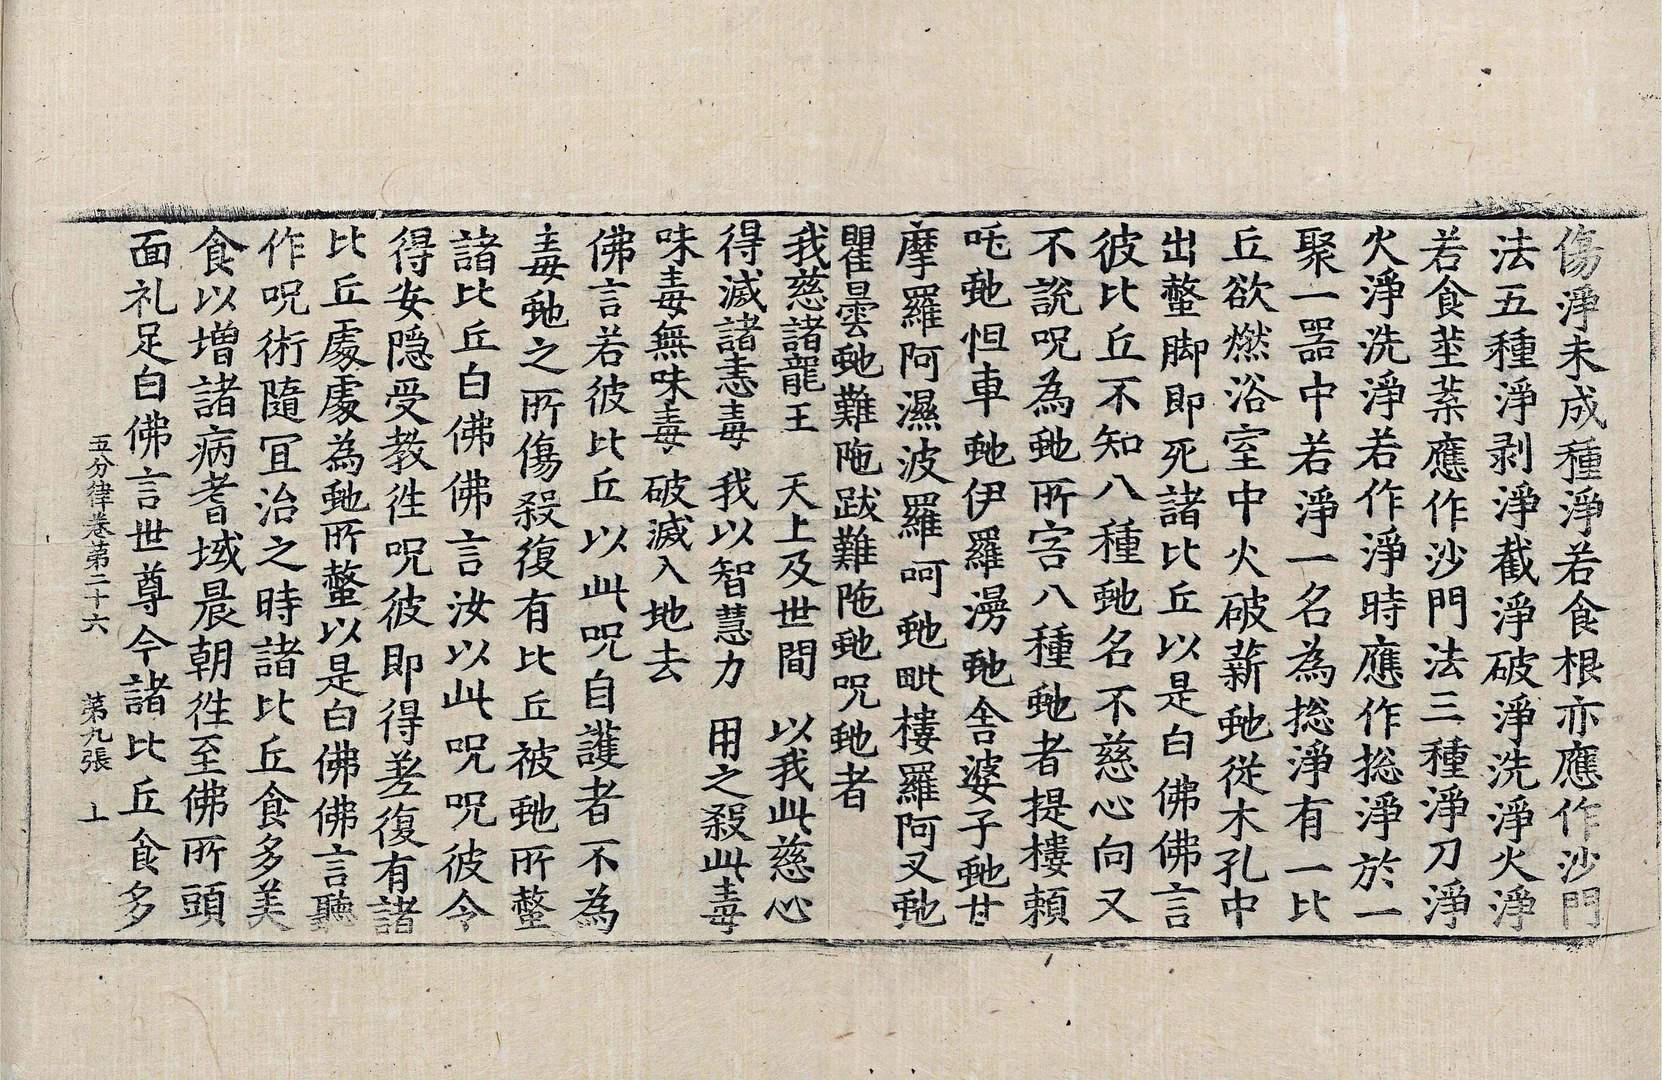 傷淨未成種淨若食根亦應作沙門
法五種淨剥淨截淨破淨洗淨火淨
若食莖葉應作沙門法三種淨刀淨
火淨洗淨若作淨時應作揔淨於一
聚一器中若淨一名為揔淨有一比
丘欲燃浴室中火破薪虵從木孔中
出螫脚即死諸比丘以是白佛佛言
彼比丘不知八種虵名不慈心向又
不說呪為虵所害八種虵者提樓頼
吒虵怛車虵伊羅漫虵舎婆子虵甘
摩羅阿濕波羅呵虵毗樓羅阿叉虵
瞿曇虵難陁跋難陁虵呪虵者
我慈諸龍王　天上及世間　以我此慈心
得滅諸恚毒　我以智慧力　用之殺此毒
味毒無味毒　破滅入地去
佛言若彼比丘以此呪自護者不為
毒虵之所傷殺復有比丘被虵所螫
諸比丘白佛佛言汝以此呪呪彼令
得安隠受教徃呪彼即得差復有諸
比丘處處為虵所螫以是白佛佛言聽
作呪術隨冝治之時諸比丘食多美
食以增諸病耆域晨朝徃至佛所頭
面礼足白佛言世尊今諸比丘食多
五分律卷第二十六　第九張　上